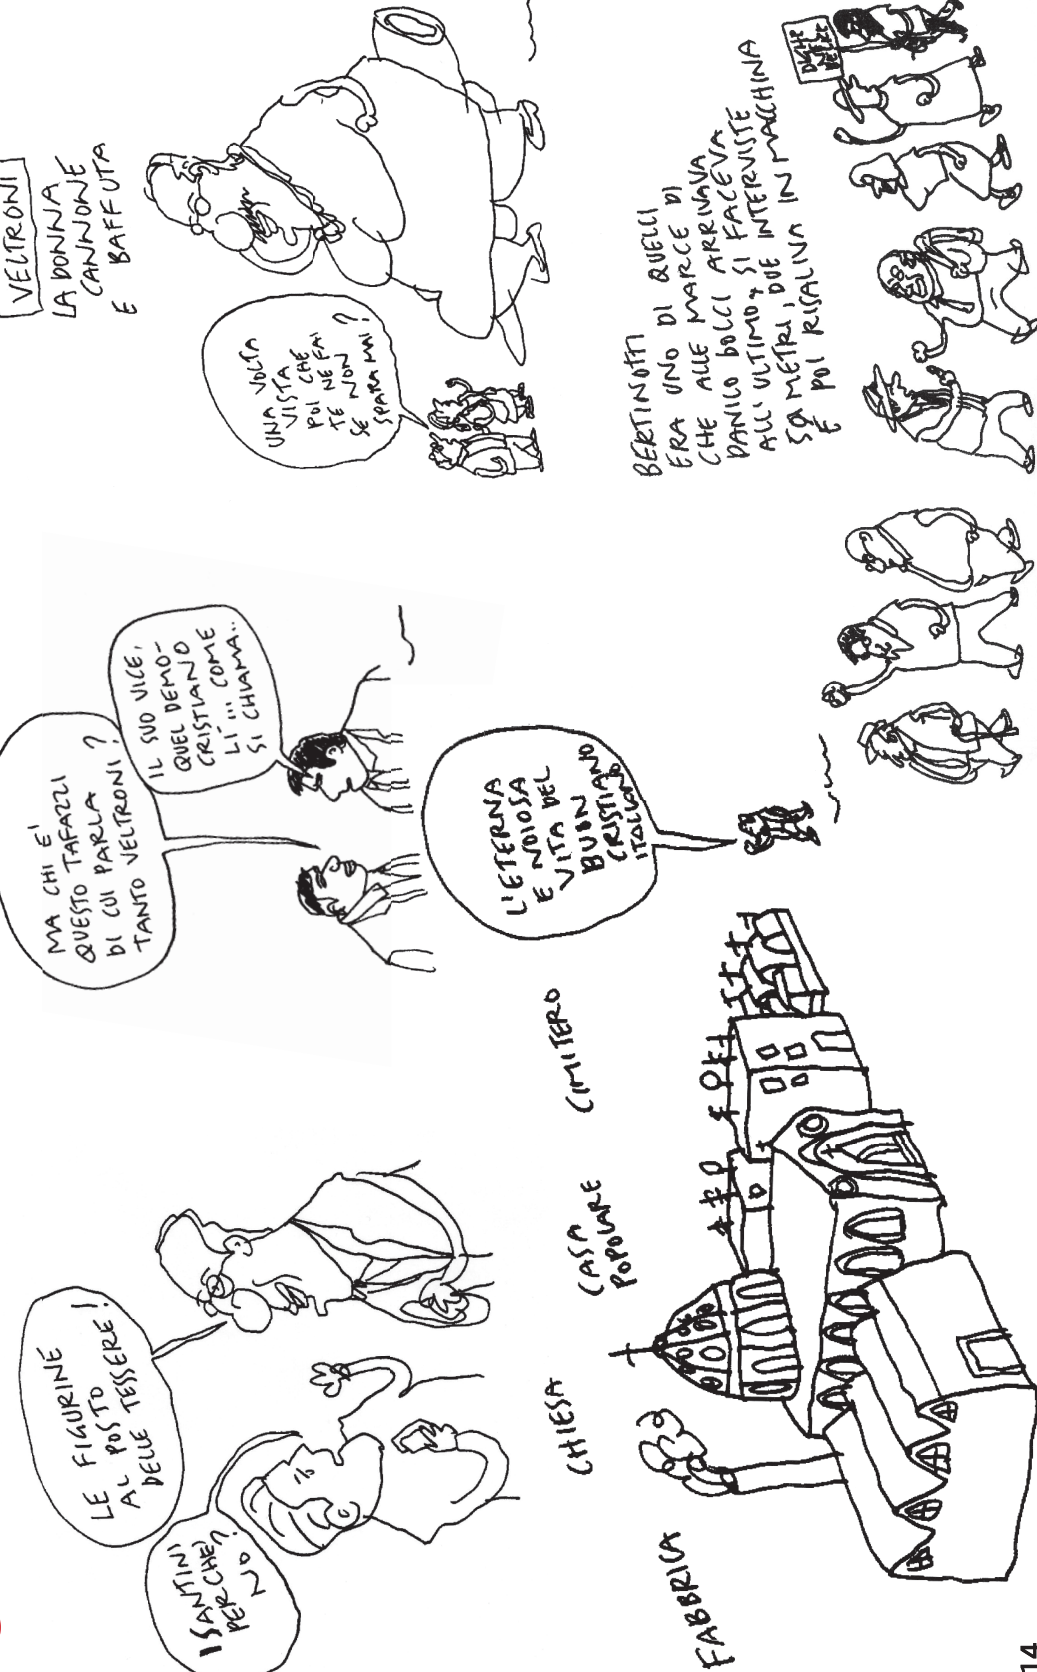 LE FIGURINE
AL POSTO
DELLE TESSERE!
I SANTINI
PERCHE'
NO?
MA CHI E'
QUESTO TAFAZZI
DI CUI PARLA
TANTO VELTRONI?
IL SUO VICE,
QUEL DEMO-
CRISTIANO
LÌ... COME
SI CHIAMA..
VELTRONI
LA DONNA
CANNONE
E BAFFUTA
UNA VOLTA
VISTA
POI CHE
TE NE FAI
SE NON
SPARA MAI?
FABBRICA
CHIESA
CASA
POPOLARE
CIMITERO
L'ETERNA
E NOIOSA
VITA DEL
BUON
CRISTIANO
ITALIANO
BERTINOTTI
ERA UNO DI QUELLI
CHE ALLE MARCE DI
DANILO DOLCI ARRIVAVA
ALL'ULTIMO, SI FACEVA
50 METRI, DUE INTERVISTE
E POI RISALIVA IN MACCHINA
DIGHE
14